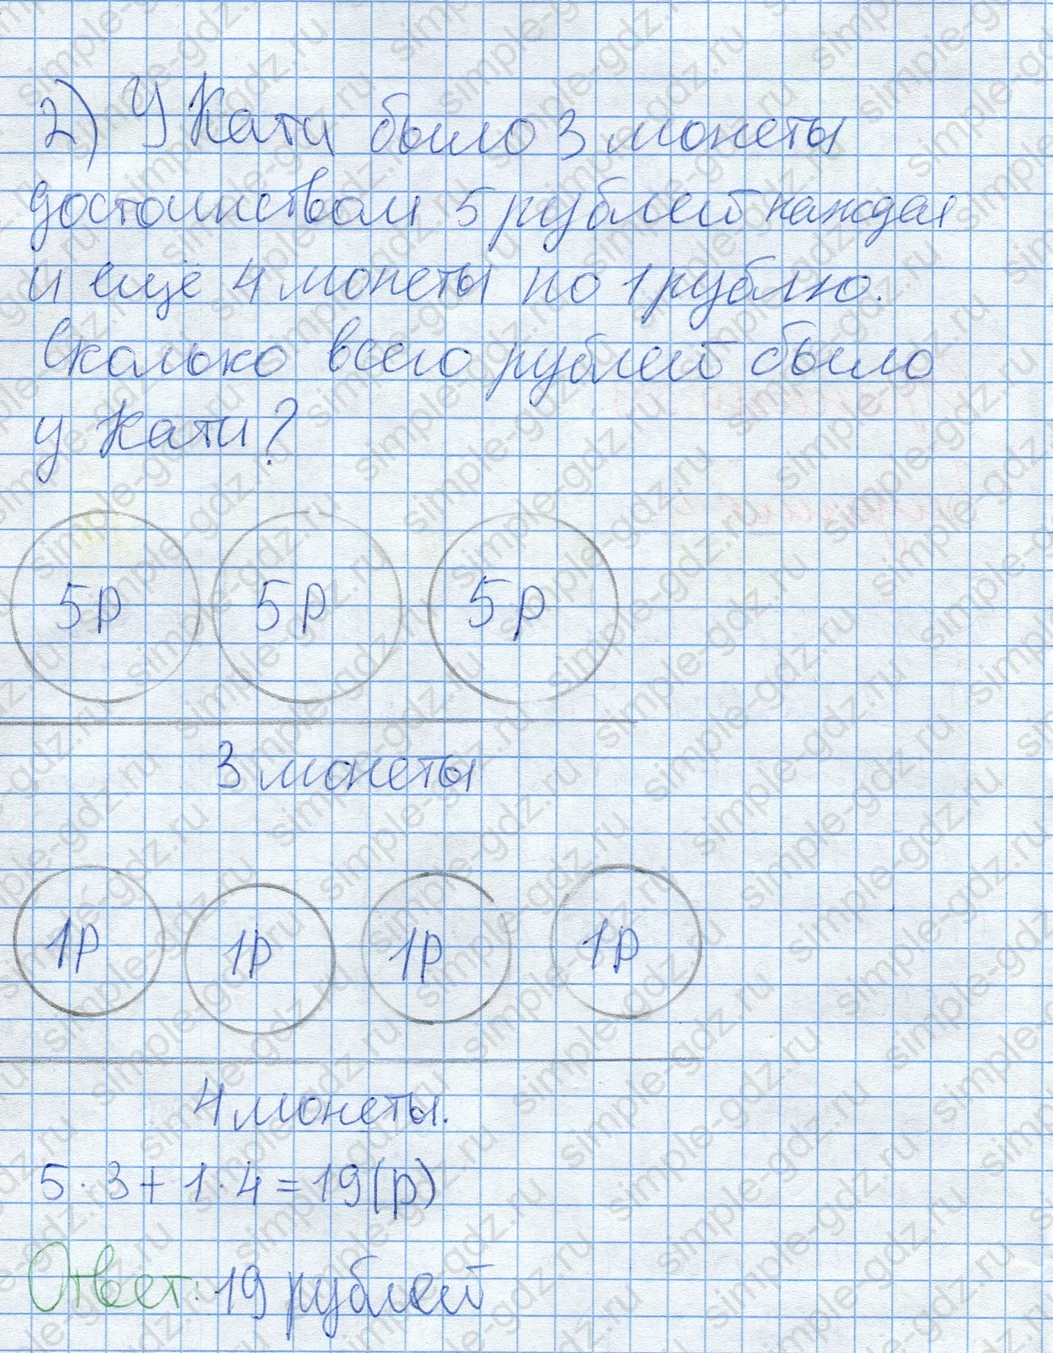 2) У Кати было 3 монеты
достоинством 5 рублей каждая
и ещё 4 монеты по 1 рублю.
Сколько всего рублей было
у Кати?
5р 5р 5р
3 монеты
1р 1р 1р 1р
4 монеты.
5 · 3 + 1 · 4 = 19 (р)
Ответ: 19 рублей
simple-gdz.ru